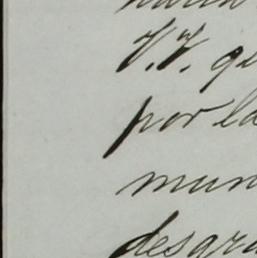 V.V. qu
por la
mun
desgra